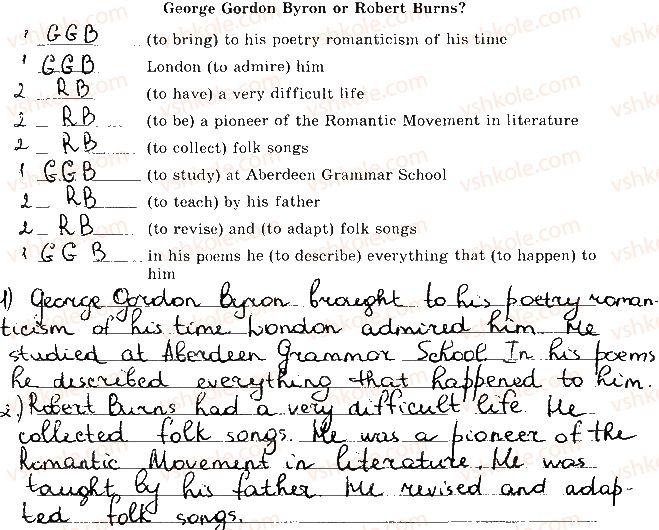 George Gordon Byron or Robert Burns?
1 GGB (to bring) to his poetry romanticism of his time
1 GGB London (to admire) him
2 RB (to have) a very difficult life
2 RB (to be) a pioneer of the Romantic Movement in literature
2 RB (to collect) folk songs
1 GGB (to study) at Aberdeen Grammar School
2 RB (to teach) by his father
2 RB (to revise) and (to adapt) folk songs
1 GGB in his poems he (to describe) everything that (to happen) to
him
1) George Gordon Byron brought to his poetry roman-
ticism of his time. London admired him. He
studied at Aberdeen Grammar School In his poems
he described everything that happened to him.
2) Robert Burns had a very difficult life. He
collected folk songs. He was a pioneer of the
Romantic Movement in literature. He was
taught by his father He revised and adap-
ted folk songs.
vshkole.com